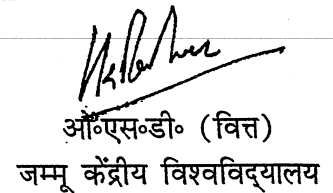 ओ॰एस॰डी॰ (वित्त)
जम्मू केंद्रीय विश्वविद्यालय